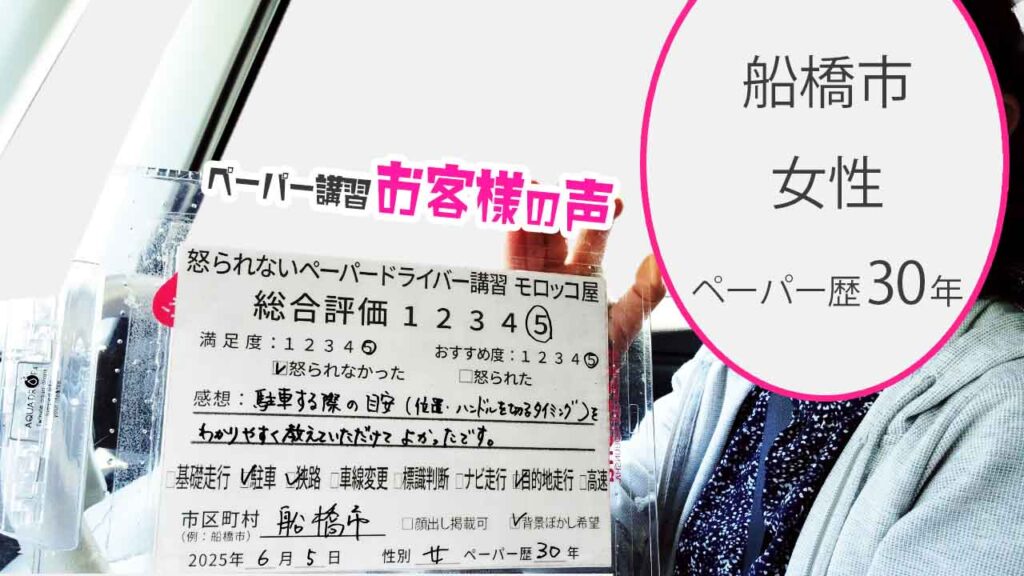 船橋市
女性
ペーパー歴30年
ペーパー講習 お客様の声
怒られないペーパードライバー講習 モロッコ屋
総合評価 1 2 3 4 ⑤
満足度:1 2 3 4 ⑤
おすすめ度:1 2 3 4 ⑤
☑怒られなかった □怒られた
感想:駐車する際の目安(位置・ハンドルを切るタイミング)を
わかりやすく教えていただけてよかったです。
□基礎走行 ☑駐車 ☑狭路 □車線変更 □標識判断 □ナビ走行 ☑目的地走行 □高速
市区町村 船橋市
(例:船橋市)
□顔出し掲載可 ☑背景ぼかし希望
2025年 6月 5日 性別 女 ペーパー歴30年